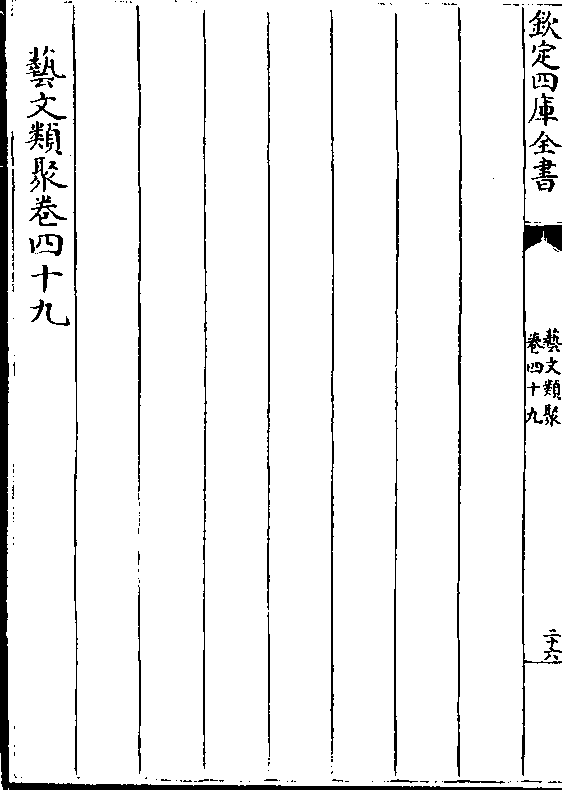 欽定四庫全書
藝文類聚
卷四十九
二十六
藝文類聚卷四十九